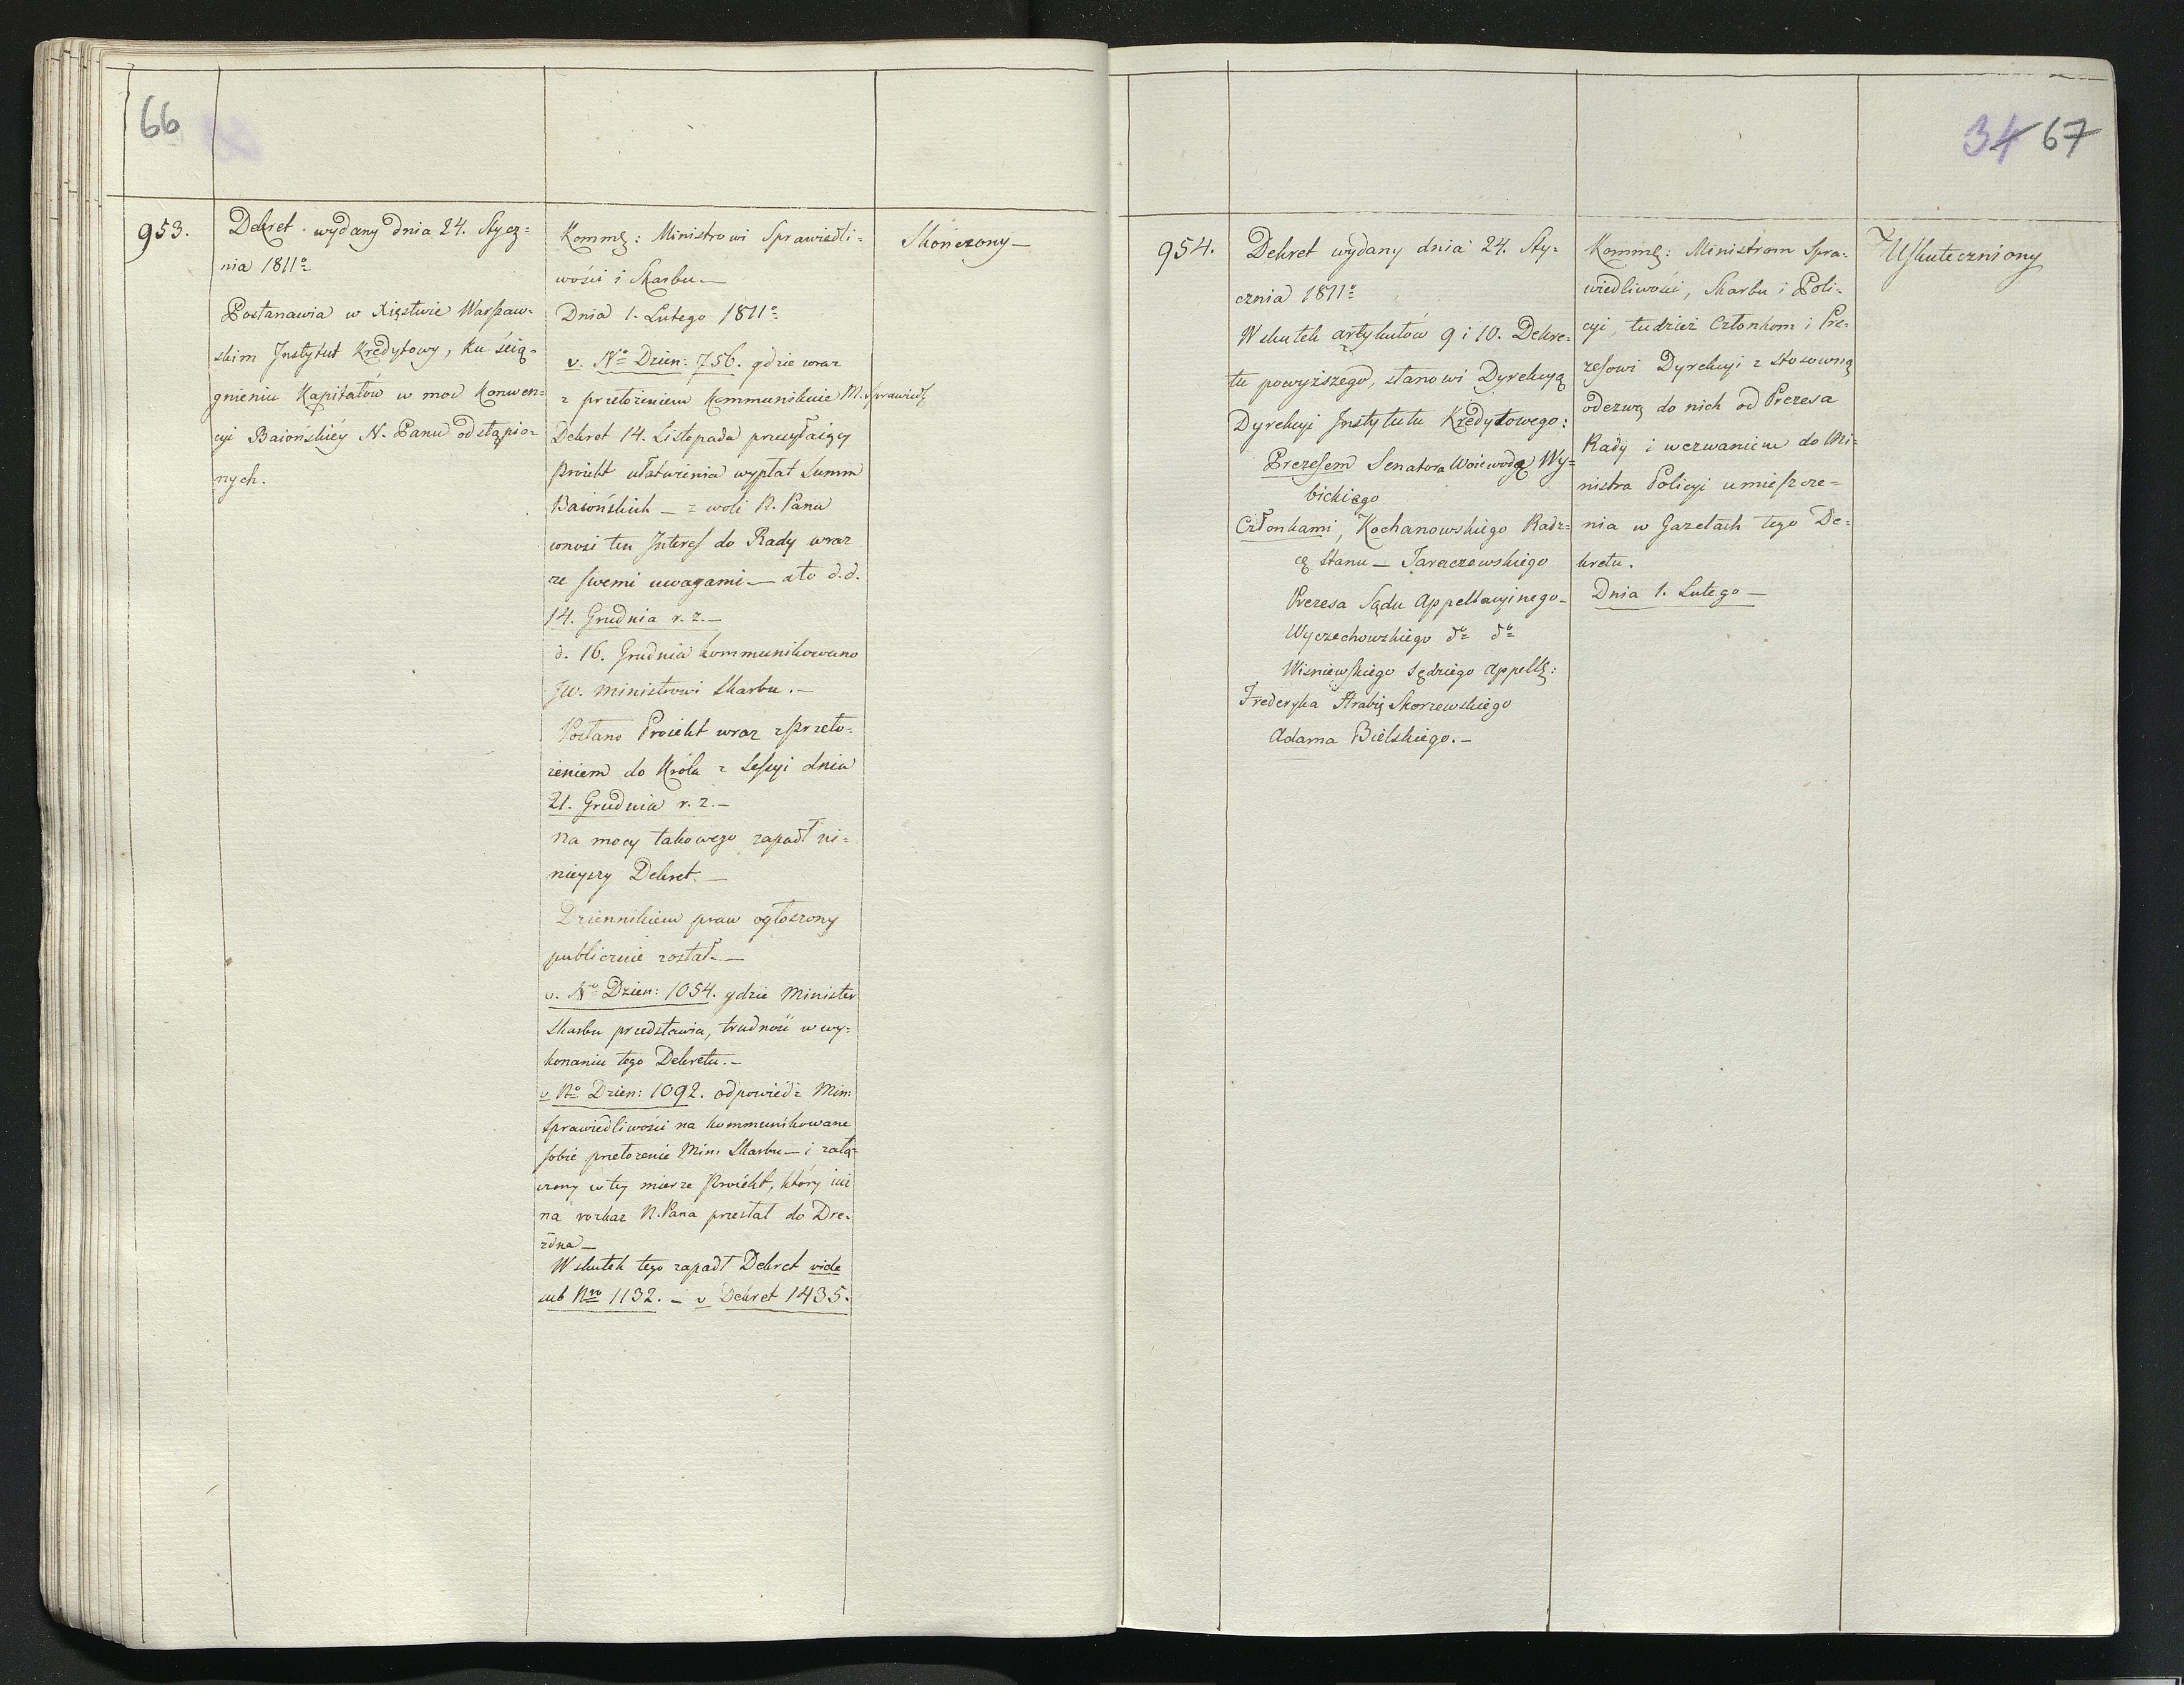 66
953.
Dekret wydany dnia 24. Stycz=
nia 1811o
Postanawia w Xięstwie Warszaw=
skim Instytut Kredytowy, ku ścią=
gnieniu Kapitałów w moc Konwen=
cyi Baiońskiéy N. Panu odstąpio=
nych.
Kommę: Ministrowi Sprawiedli=
wości i Skarbu.—
Dnia 1. Lutego 1811o
v. No Dzien: 756. gdzie wraz
z przełożeniem kommunikuie M. Sprawiedl
Dekret 14. Listopada przesyłaiący
Proiekt ułatwienia wypłat Summ
Baiońskich — z woli N. Pana
wnosi ten Interes do Rady wraz
ze swemi uwagami — a to d.d.
14. Grudnia r. z.—
d. 16. Grudnia kommunikowano
JW. Ministrowi Skarbu.—
Posłano Proiekt wraz z przeło=
żeniem do Króla z Sessyi dnia
21. Grudnia r. z.—
na mocy takowego zapadł ni=
nieyszy Dekret.—
Dziennikiem praw ogłoszony
publicznie został.—
v. No Dzien: 1054. gdzie Minister
Skarbu przedstawia, trudność w wy=
konaniu tego Dekretu.—
v No Dzien: 1092. odpowiédź Min:
Sprawiedliwości na kommunikowane
sobie przełożenie Min: Skarbu — i załą=
czony w tey mierze Proiekt, który iuż
na rozkaz N. Pana przesłał do Dre=
zdna —
Wskutek tego zapadł Dekret vide
sub Nro 1132. — v Dekret 1435.
Skończony —
34 67
954.
Dekret wydany dnia 24. Sty=
cznia 1811o
Wskutek artykułów 9 i 10. Dekre=
tu powyższego, stanowi Dyrekcyą
Dyrekcyi Instytutu Kredytowego:
Prezesem Senatora Woiewodę Wy=
bickiego
Członkami, Kochanowskiego Radz=
cę Stanu — Tarczewskiego
Prezesa Sądu Appellacyinego —
Wyczechowskiego do do
Wisniewskiego Sędziego Appellę:
Frederyka Hrabię Skorzewskiego
Adama Bielskiego.—
Kommę: Ministrom Spra=
wiedliwości, Skarbu i Poli=
cyi, tudzież Członkom i Pre=
zesowi Dyrekcyi z stosowną
odezwą do nich od Prezesa
Rady i wezwaniem do Mi=
nistra Policyi umieszcze=
nia w Gazetach tego De=
kretu.
Dnia 1. Lutego —
Uskuteczniony